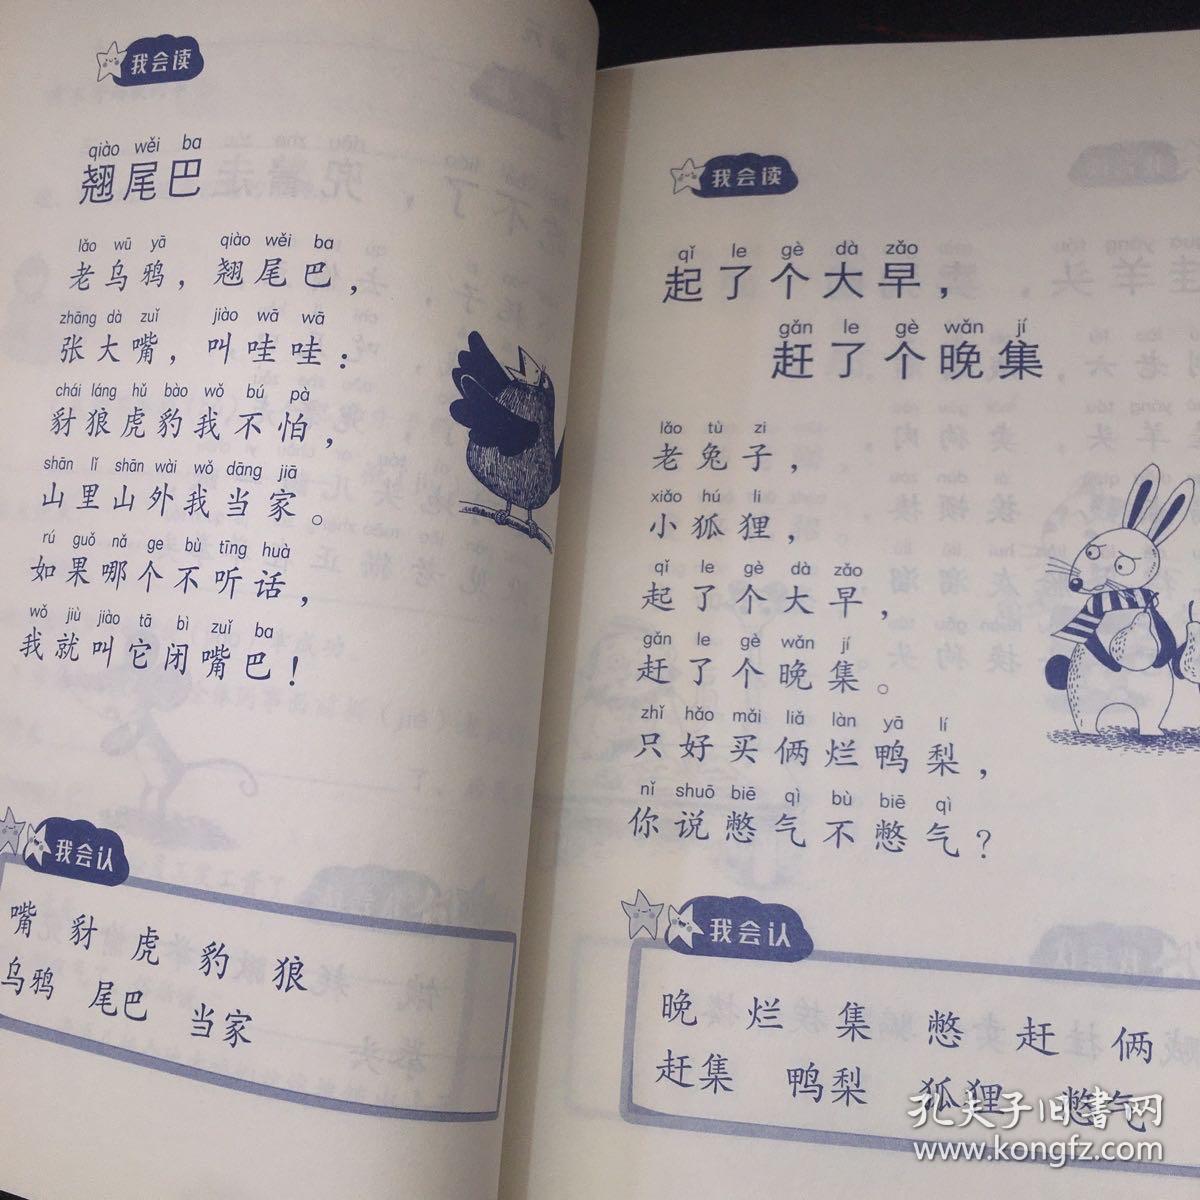 我会读
qiào wěi ba
翘尾巴
lǎo wū yā qiào wěi ba
老乌鸦，翘尾巴，
zhāng dà zuǐ jiào wā wā
张大嘴，叫哇哇：
chái láng hǔ bào wǒ bú pà
豺狼虎豹我不怕，
shān lǐ shān wài wǒ dāng jiā
山里山外我当家。
rú guǒ nǎ ge bù tīng huà
如果哪个不听话，
wǒ jiù jiào tā bì zuǐ ba
我就叫它闭嘴巴！
我会认
嘴 豺 虎 豹 狼
乌鸦 尾巴 当家
我会读
qǐ le gè dà zǎo
起了个大早，
gǎn le gè wǎn jí
赶了个晚集
lǎo tù zi
老兔子，
xiǎo hú li
小狐狸，
qǐ le gè dà zǎo
起了个大早，
gǎn le gè wǎn jí
赶了个晚集。
zhǐ hǎo mǎi liǎ làn yā lí
只好买俩烂鸭梨，
nǐ shuō biē qì bù biē qì
你说憋气不憋气？
我会认
晚 烂 集 憋 赶 俩
赶集 鸭梨 狐狸 憋气
孔夫子旧书网
www.kongfz.com